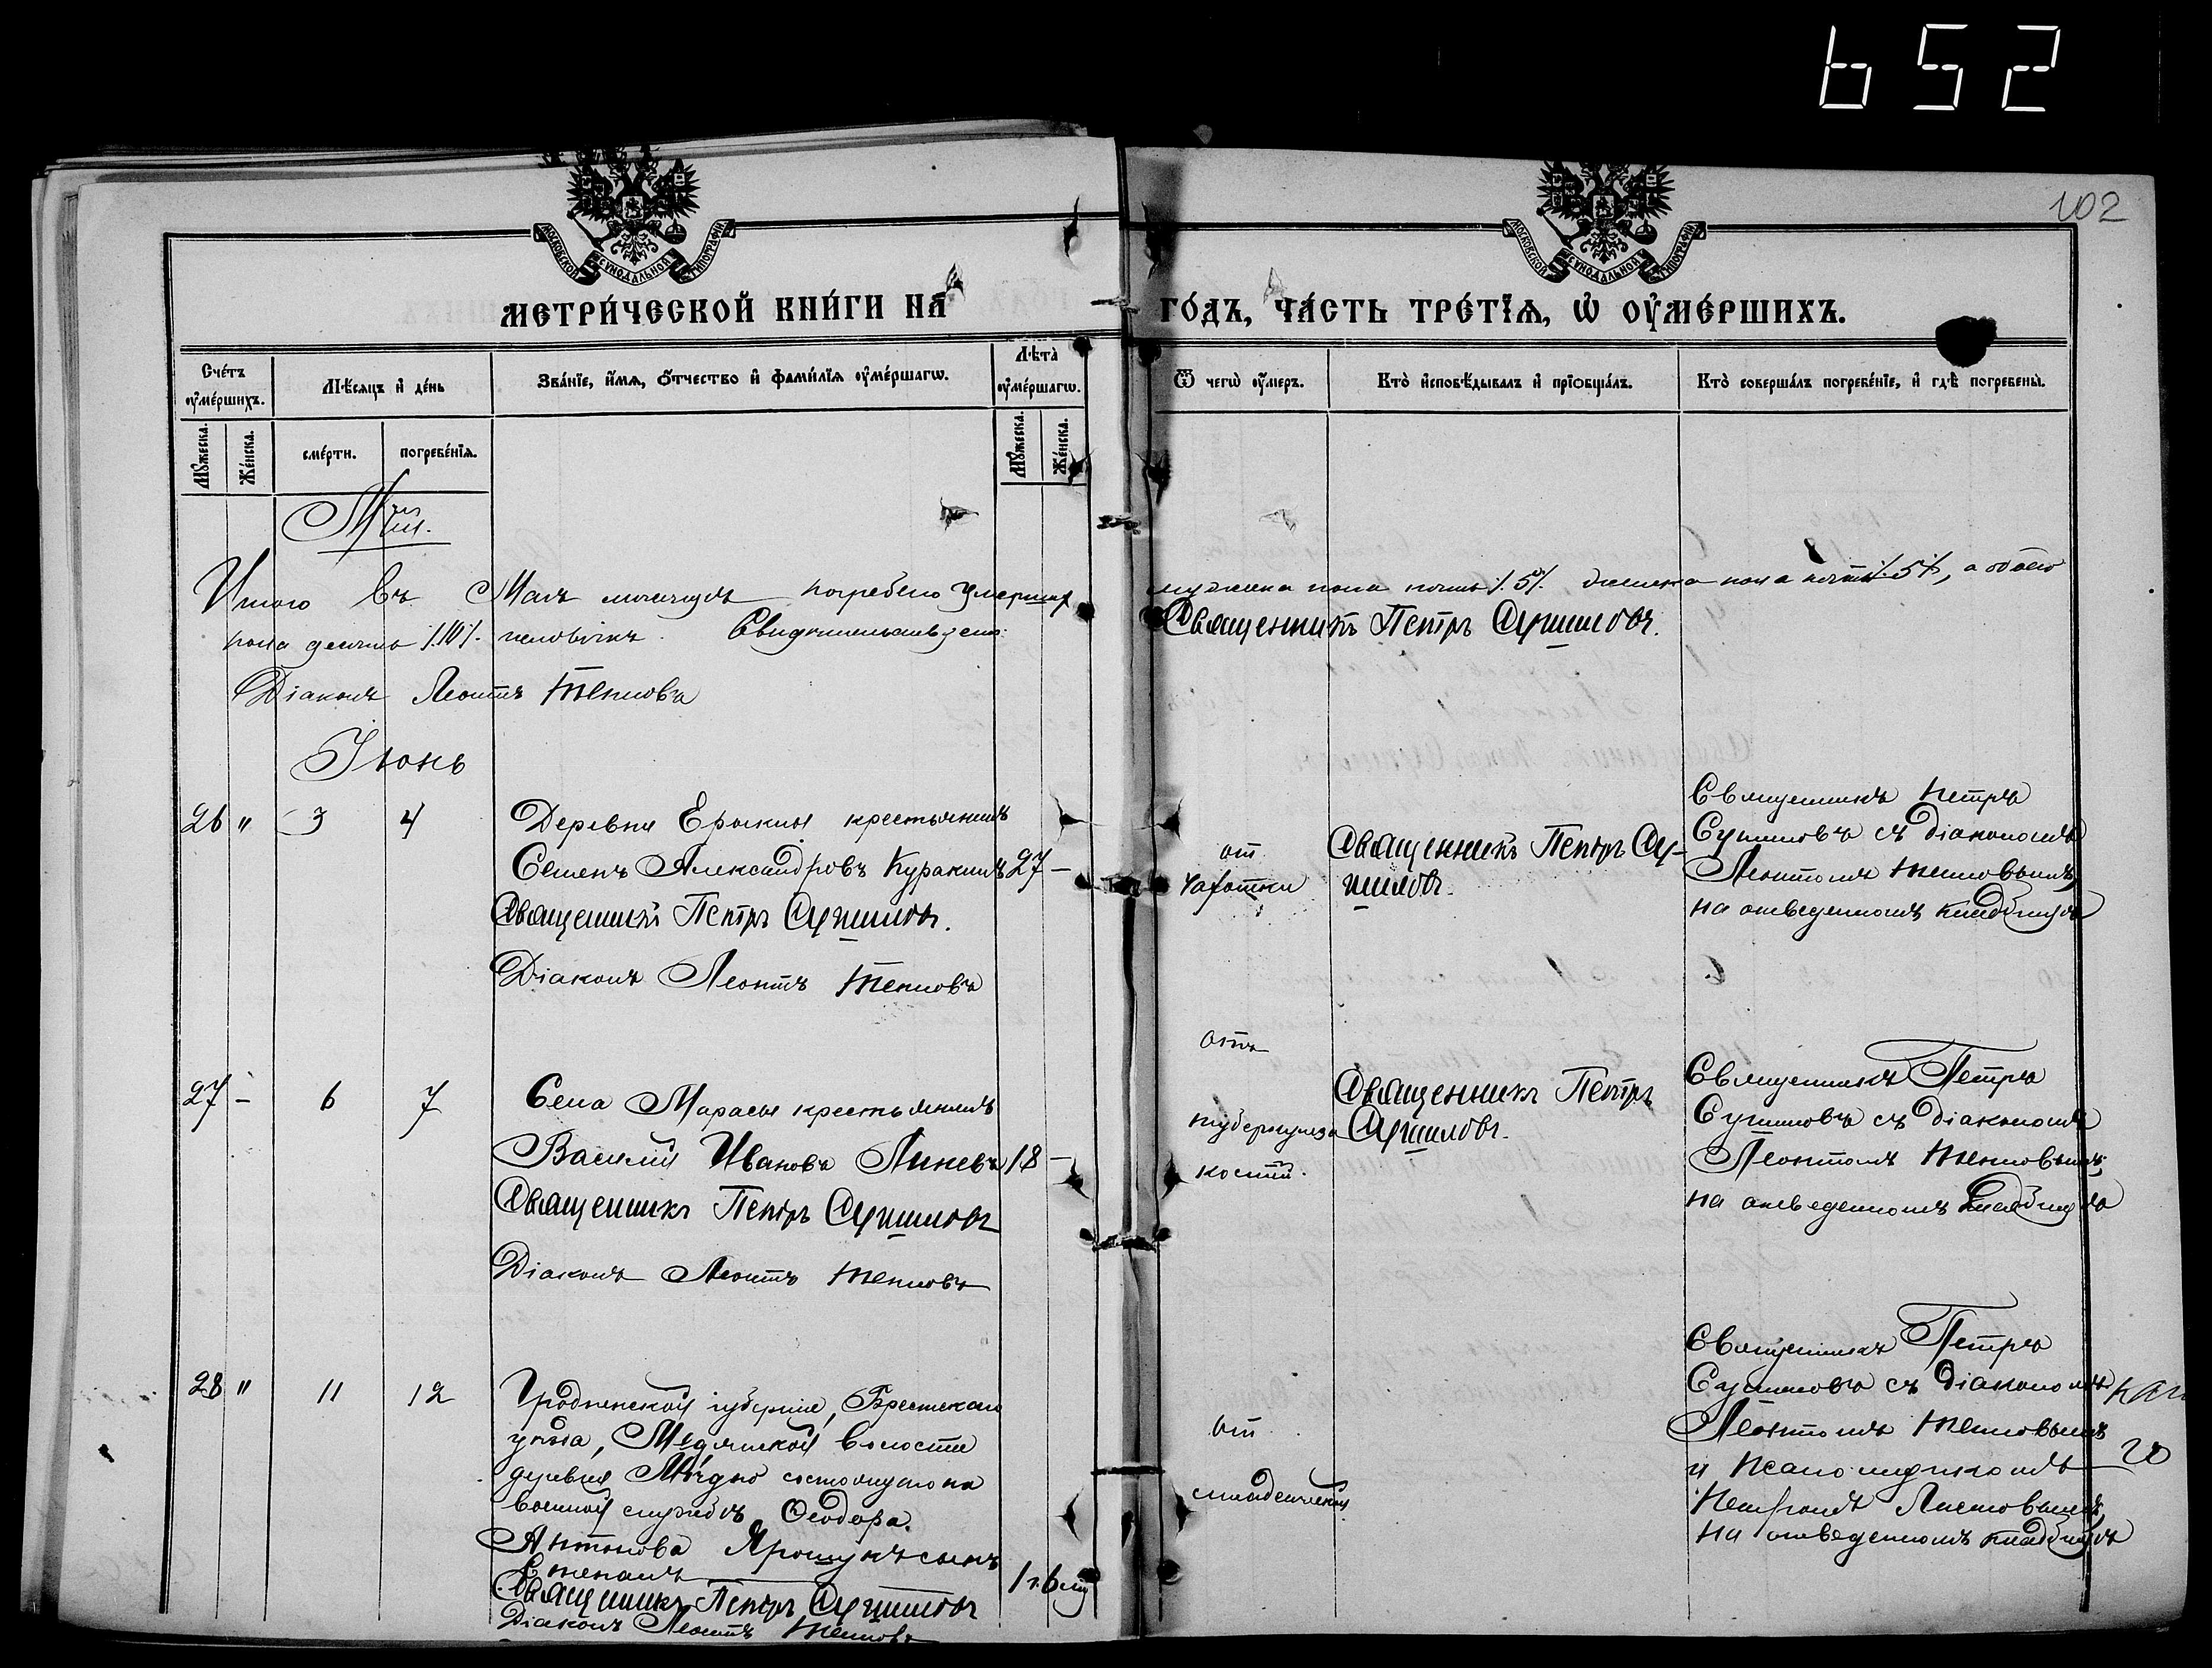 652
102
МОСКОВСКОЙ СѴНОДАЛЬНОЙ ТИПОГРАФІИ
МОСКОВСКОЙ СѴНОДАЛЬНОЙ ТИПОГРАФІИ
МЕТРИ́ЧЕСКОЙ КНИ́ГИ НА̀ ГО́ДЪ, ЧА́СТЬ ТРЕ́ТІѦ, Ѡ҆ ОУ҆МЕ́РШИХЪ.
Сче́тъ оу҆ме́ршихъ.
Мꙋ́жеска.
Же́нска.
Мѣ́сѧцъ и҆ де́нь
сме́рти.
погребе́нїѧ.
Зва́нїе, и҆́мѧ, ѻ҆́тчество и҆ фамі́лїѧ оу҆ме́ршагѡ.
Лѣ̑та̀ оу҆ме́ршагѡ.
Мꙋ́жеска.
Же́нска.
Ѿ чегѡ̀ оу҆́меръ.
Кто̀ и҆сповѣ́дывалъ и҆ прїѡбща́лъ.
Кто̀ соверша́лъ погребе́нїе, и҆ гдѣ̀ погребены̀.
Май.
Итого въ Маѣ месяцѣ погребено умерших
мужска пола пять /.5/. женска пола пять /.5/., а обоего
пола десять /.10/. человѣкъ. Свидѣтельствуемъ:
Священникъ Петръ Сушиловъ.
Діаконъ Леонтъ Тепловъ
Іюнь
26 " 3 4
Деревни Ерыкли крестьянинъ
Семенъ Александровъ Куракинъ 27 —
Священникъ Петръ Сушиловъ.
Діаконъ Леонтъ Тепловъ
от
чахотки
Священникъ Петръ Су-
шиловъ.
Священникъ Петръ
Сушиловъ съ діакономъ
Леонтомъ Тепловымъ
на отведенномъ кладбищѣ
27 — 6 7
Села Марасы крестьянинъ
Василій Ивановъ Линевъ 18 —
Священникъ Петръ Сушиловъ
Діаконъ Леонтъ Тепловъ
отъ
туберкулеза
костей.
Священникъ Петръ
Сушиловъ.
Священникъ Петръ
Сушиловъ съ діакономъ
Леонтомъ Тепловымъ
на отведенномъ кладбищѣ
28 " 11 12
Гродненской губерніи, Брестскаго
уѣзда, волости
деревни состоящаго на
военной службѣ Ѳеодора
Антонова Ярошукъ сынъ
Степанъ 1 г. 6 мѣ
Священникъ Петръ Сушиловъ
Діаконъ Леонтъ Тепловъ
от
младенческой
Священникъ Петръ
Сушиловъ съ діакономъ
Леонтомъ Тепловымъ
и псаломщикомъ
Листовымъ
на отведенномъ кладбищѣ